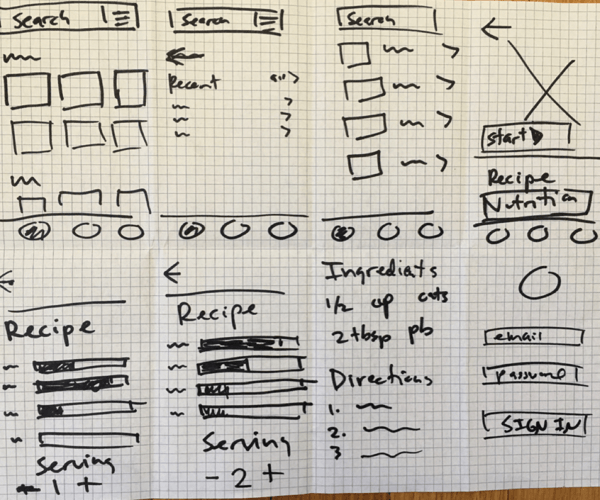 Search
Search
Recent
all >
Search
start
Recipe
Nutrition
Recipe
Serving
- 1 +
Recipe
Serving
- 2 +
Ingrediats
1/2 cup oats
2 tbsp pb
Directions
1.
2.
3
email
password
SIGN IN